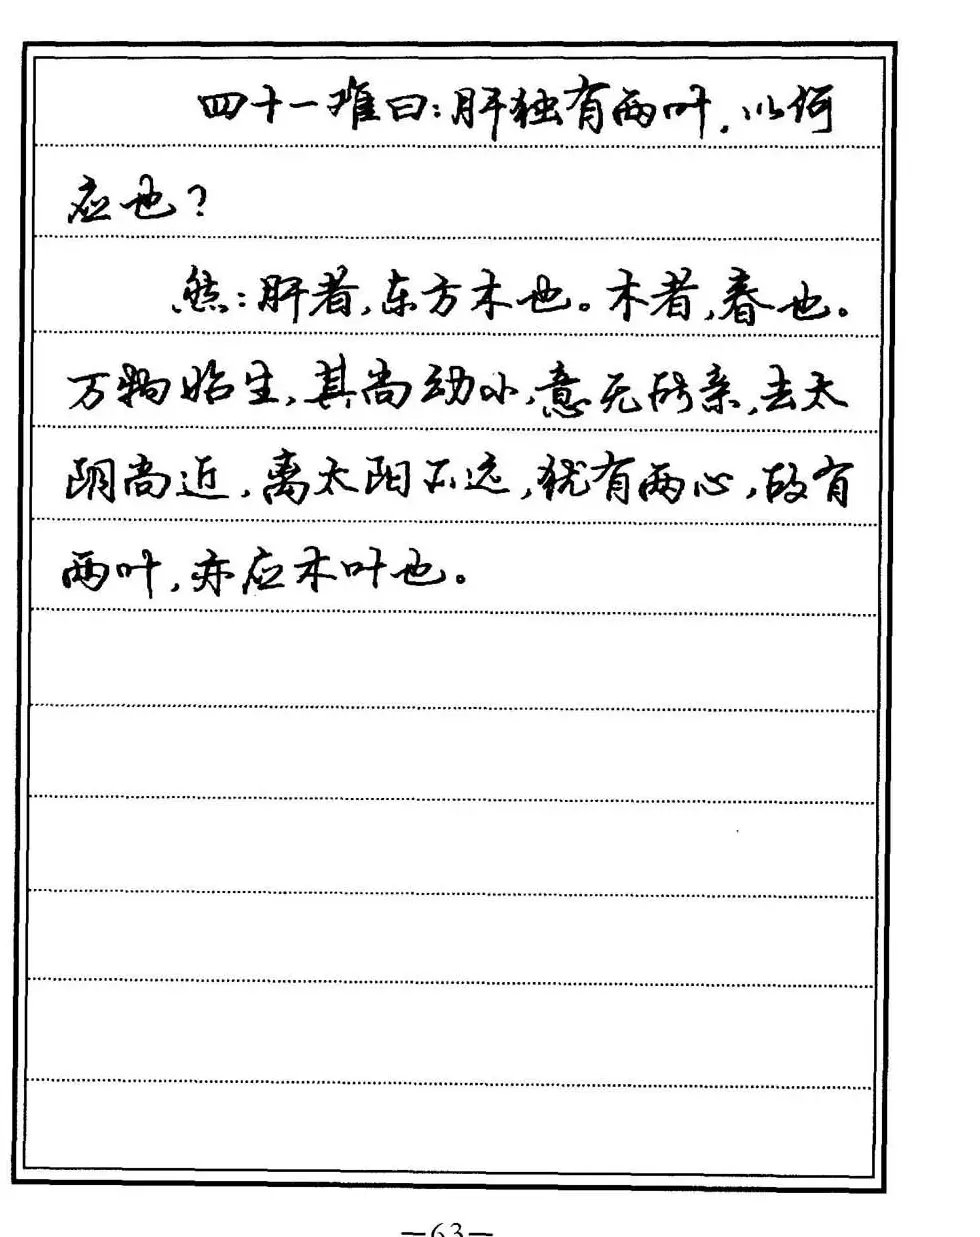 四十一难曰:肝独有两叶,以何
应也?
然:肝者,东方木也。木者,春也。
万物始生,其尚幼小,意无所亲,去太
阴尚近,离太阳不远,犹有两心,故有
两叶,亦应木叶也。
—63—